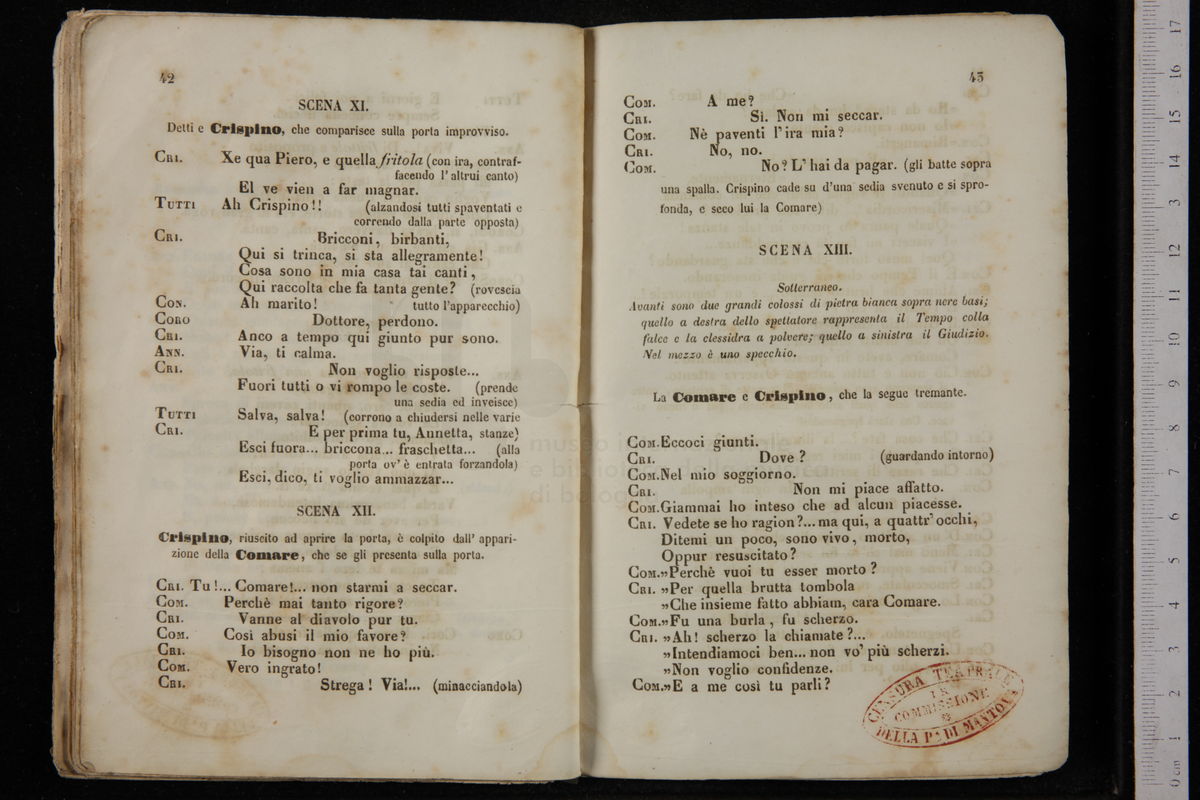 42
SCENA XI.
Detti e Crispino, che comparisce sulla porta improvviso.
CRI. Xe qua Piero, e quella fritola (con ira, contraf-
facendo l'altrui canto)
El ve vien a far magnar.
TUTTI Ah Crispino!! (alzandosi tutti spaventati e
correndo dalla parte opposta)
CRI. Bricconi, birbanti,
Qui si trinca, si sta allegramente!
Cosa sono in mia casa tai canti,
Qui raccolta che fa tanta gente? (rovescia
CON. Ah marito! tutto l'apparecchio)
CORO Dottore, perdono.
CRI. Anco a tempo qui giunto pur sono.
ANN. Via, ti calma.
CRI. Non voglio risposte...
Fuori tutti o vi rompo le coste. (prende
una sedia ed inveisce)
TUTTI Salva, salva! (corrono a chiudersi nelle varie
CRI. E per prima tu, Annetta, stanze)
Esci fuora... briccona... fraschetta... (alla
porta ov'è entrata forzandola)
Esci, dico, ti voglio ammazzar...
SCENA XII.
Crispino, riuscito ad aprire la porta, è colpito dall' appari-
zione della Comare, che se gli presenta sulla porta.
CRI. Tu!... Comare!... non starmi a seccar.
COM. Perchè mai tanto rigore?
CRI. Vanne al diavolo pur tu.
COM. Così abusi il mio favore?
CRI. Io bisogno non ne ho più.
COM. Vero ingrato!
CRI. Strega! Via!... (minacciandola)
43
COM. A me?
CRI. Sì. Non mi seccar.
COM. Nè paventi l'ira mia?
CRI. No, no.
COM. No? L'hai da pagar. (gli batte sopra
una spalla. Crispino cade su d'una sedia svenuto e si spro-
fonda, e seco lui la Comare)
SCENA XIII.
Sotterraneo.
Avanti sono due grandi colossi di pietra bianca sopra nere basi;
quello a destra dello spettatore rappresenta il Tempo colla
falce e la clessidra a polvere; quello a sinistra il Giudizio.
Nel mezzo è uno specchio.
La Comare e Crispino, che la segue tremante.
COM. Eccoci giunti.
CRI. Dove? (guardando intorno)
COM. Nel mio soggiorno.
CRI. Non mi piace affatto.
COM. Giammai ho inteso che ad alcun piacesse.
CRI. Vedete se ho ragion?... ma qui, a quattr'occhi,
Ditemi un poco, sono vivo, morto,
Oppur resuscitato?
COM. »Perchè vuoi tu esser morto?
CRI. »Per quella brutta tombola
»Che insieme fatto abbiam, cara Comare.
COM. »Fu una burla, fu scherzo.
CRI. »Ah! scherzo la chiamate?...
»Intendiamoci ben... non vo' più scherzi.
»Non voglio confidenze.
COM. »E a me così tu parli?
CENSURA TEATRALE
I. R.
COMMISSIONE
DELLA P.ª DI MANTOVA
museo
e bibliot
di bolo
0 cm 1 2 3 4 5 6 7 8 9 10 11 12 13 14 15 16 17